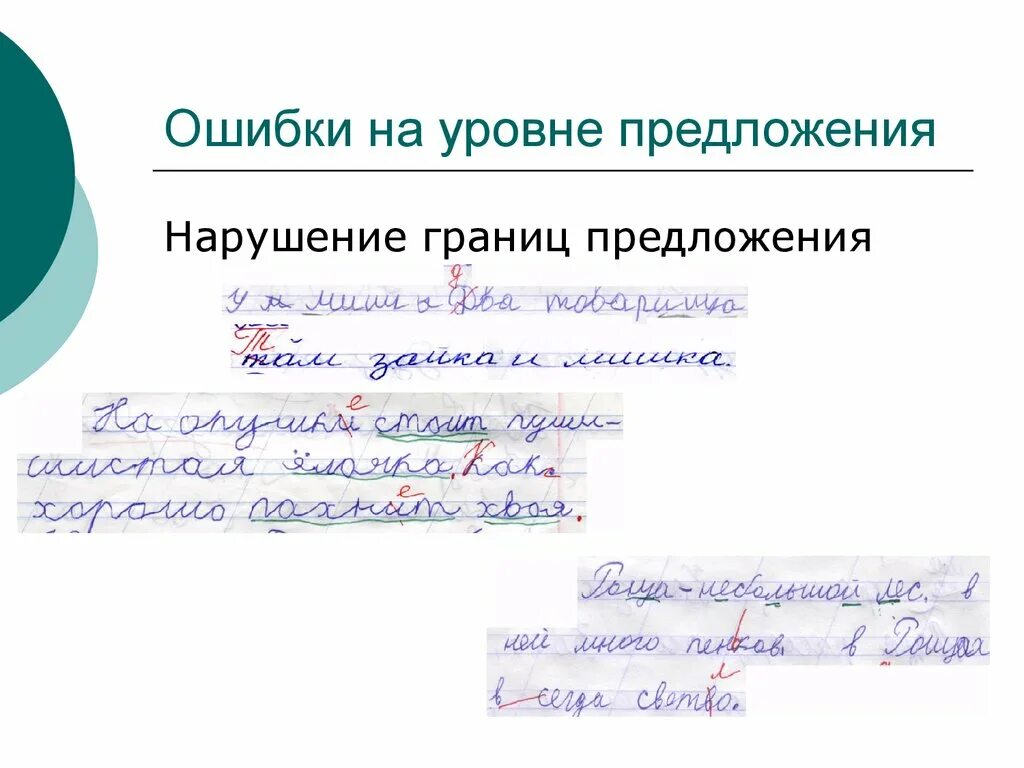 Ошибки на уровне предложения
Нарушение границ предложения
д
у м миши Два товарища
Т
там зайка и мишка.
е
На опушки стоит пуши-
шистая ёлочка. Как
е
хорошо пахнит хвоя.
Роща - небольшой лес. в
ней много пенков. в Рощах
л
в сегда светво.